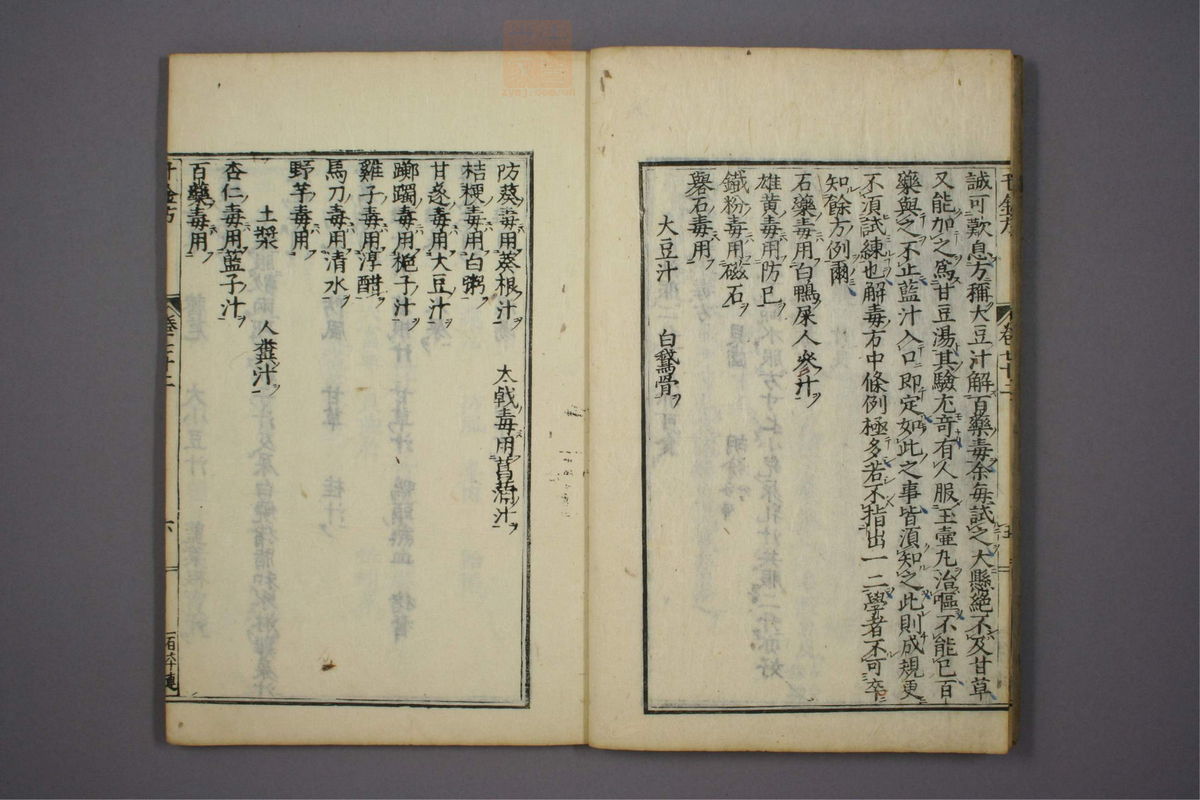 誠可歎息方稱大豆汁解百藥毒余每試之大懸絕不及甘草
又能加之爲甘豆湯其驗尤竒有人服玉壷丸治嘔不能已百
藥與之不止藍汁入口即定如此之事皆須知之此則成規更
不須試練也解毒方中條例極多若不指出一二學者不可卒
知餘方例爾
石藥毒用白鴨屎人參汁
雄黃毒用防已
鐵粉毒用磁石
礜石毒用
大豆汁 白鵞骨
防葵毒用葵根汁 大戟毒用菖蒲汁
桔梗毒用白粥
甘遂毒用大豆汁
躑躅毒用梔子汁
雞子毒用淳醋
馬刀毒用清水
野芋毒用
土漿 人糞汁
杏仁毒用藍子汁
百藥毒用
千金方 卷二十二 六